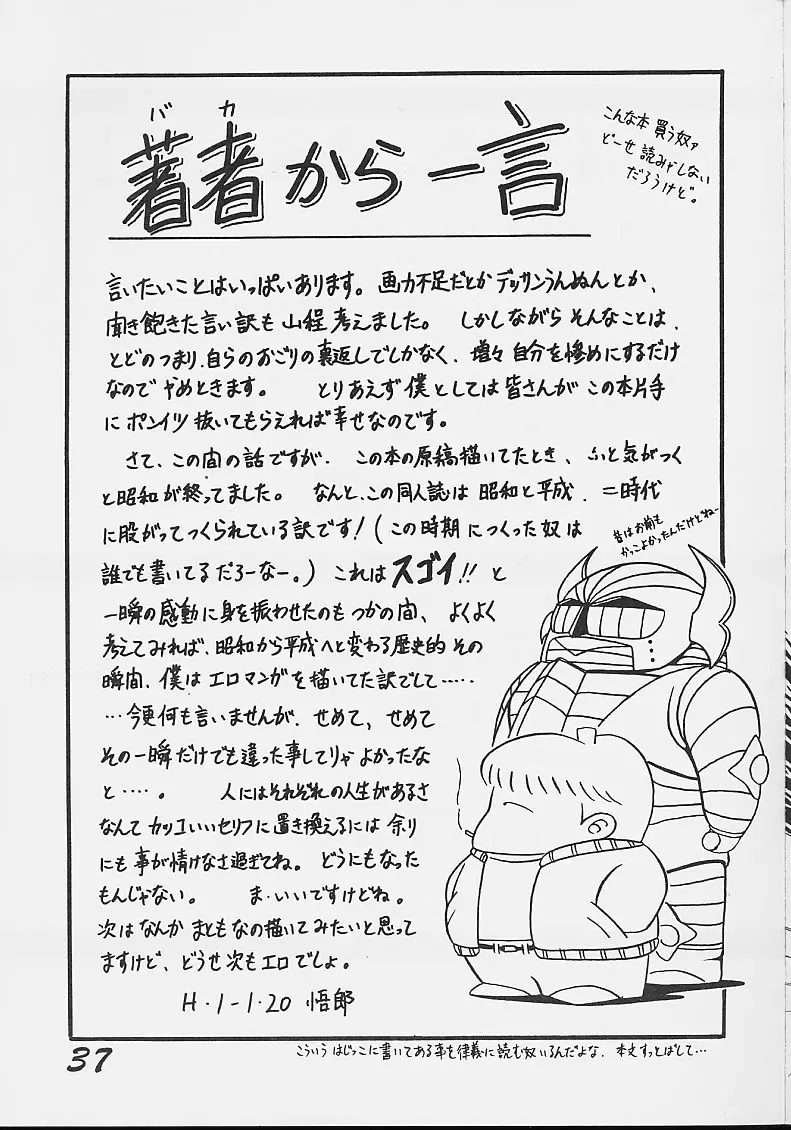 バカ
著者から一言
こんな本 買う奴ァ
どーせ 読みゃしない
だろうけど。
言いたいことはいっぱいあります。画力不足だとか デッサンうんぬんとか、
聞き飽きた言い訳も 山程 考えました。 しかしながら そんなことは、
とどのつまり、自らのおごりの裏返しでしかなく、増々 自分を惨めにするだけ
なので やめときます。 とりあえず 僕としては皆さんが この本片手
に ポンイツ 抜いてもらえれば幸せなのです。
さて、この間の話ですが、 この本の原稿描いてたとき、ふと気がつく
と昭和が終ってました。 なんと、この同人誌は 昭和と平成、二時代
に股がってつくられている訳です!(この時期につくった奴は
誰でも書いてるだろーなー。) これは スゴイ!! と
一瞬の感動に身を振わせたのも つかの間、 よくよく
考えてみれば、昭和から平成へと変わる歴史的 その
瞬間、僕は エロマンガを描いてた訳でして……
…今更何も言いませんが、せめて、せめて
その一瞬だけでも違った事してりゃ よかったな
と……。 人にはそれぞれの人生があるさ
なんて カッコいいセリフに置き換えるには 余り
にも 事が情けなさ過ぎてね。どうにもなった
もんじゃない。 ま、いいですけどね。
次は なんか まともなの描いてみたいと思って
ますけど、どうせ次もエロでしょ。
H・1-1・20 悟郎
昔はお前も
かっこよかったんだけどねー
37
こういう はじっこに書いてある事を律義に読む奴いるんだよな、本文すっとばして…